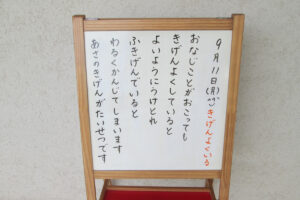 9月11日(月)きげんよくいる
おなじことがおこっても
きげんよくしていると
よいようにうけとれ
ふきげんでいると
わるくかんじてしまいます
あさのきげんがたいせつです